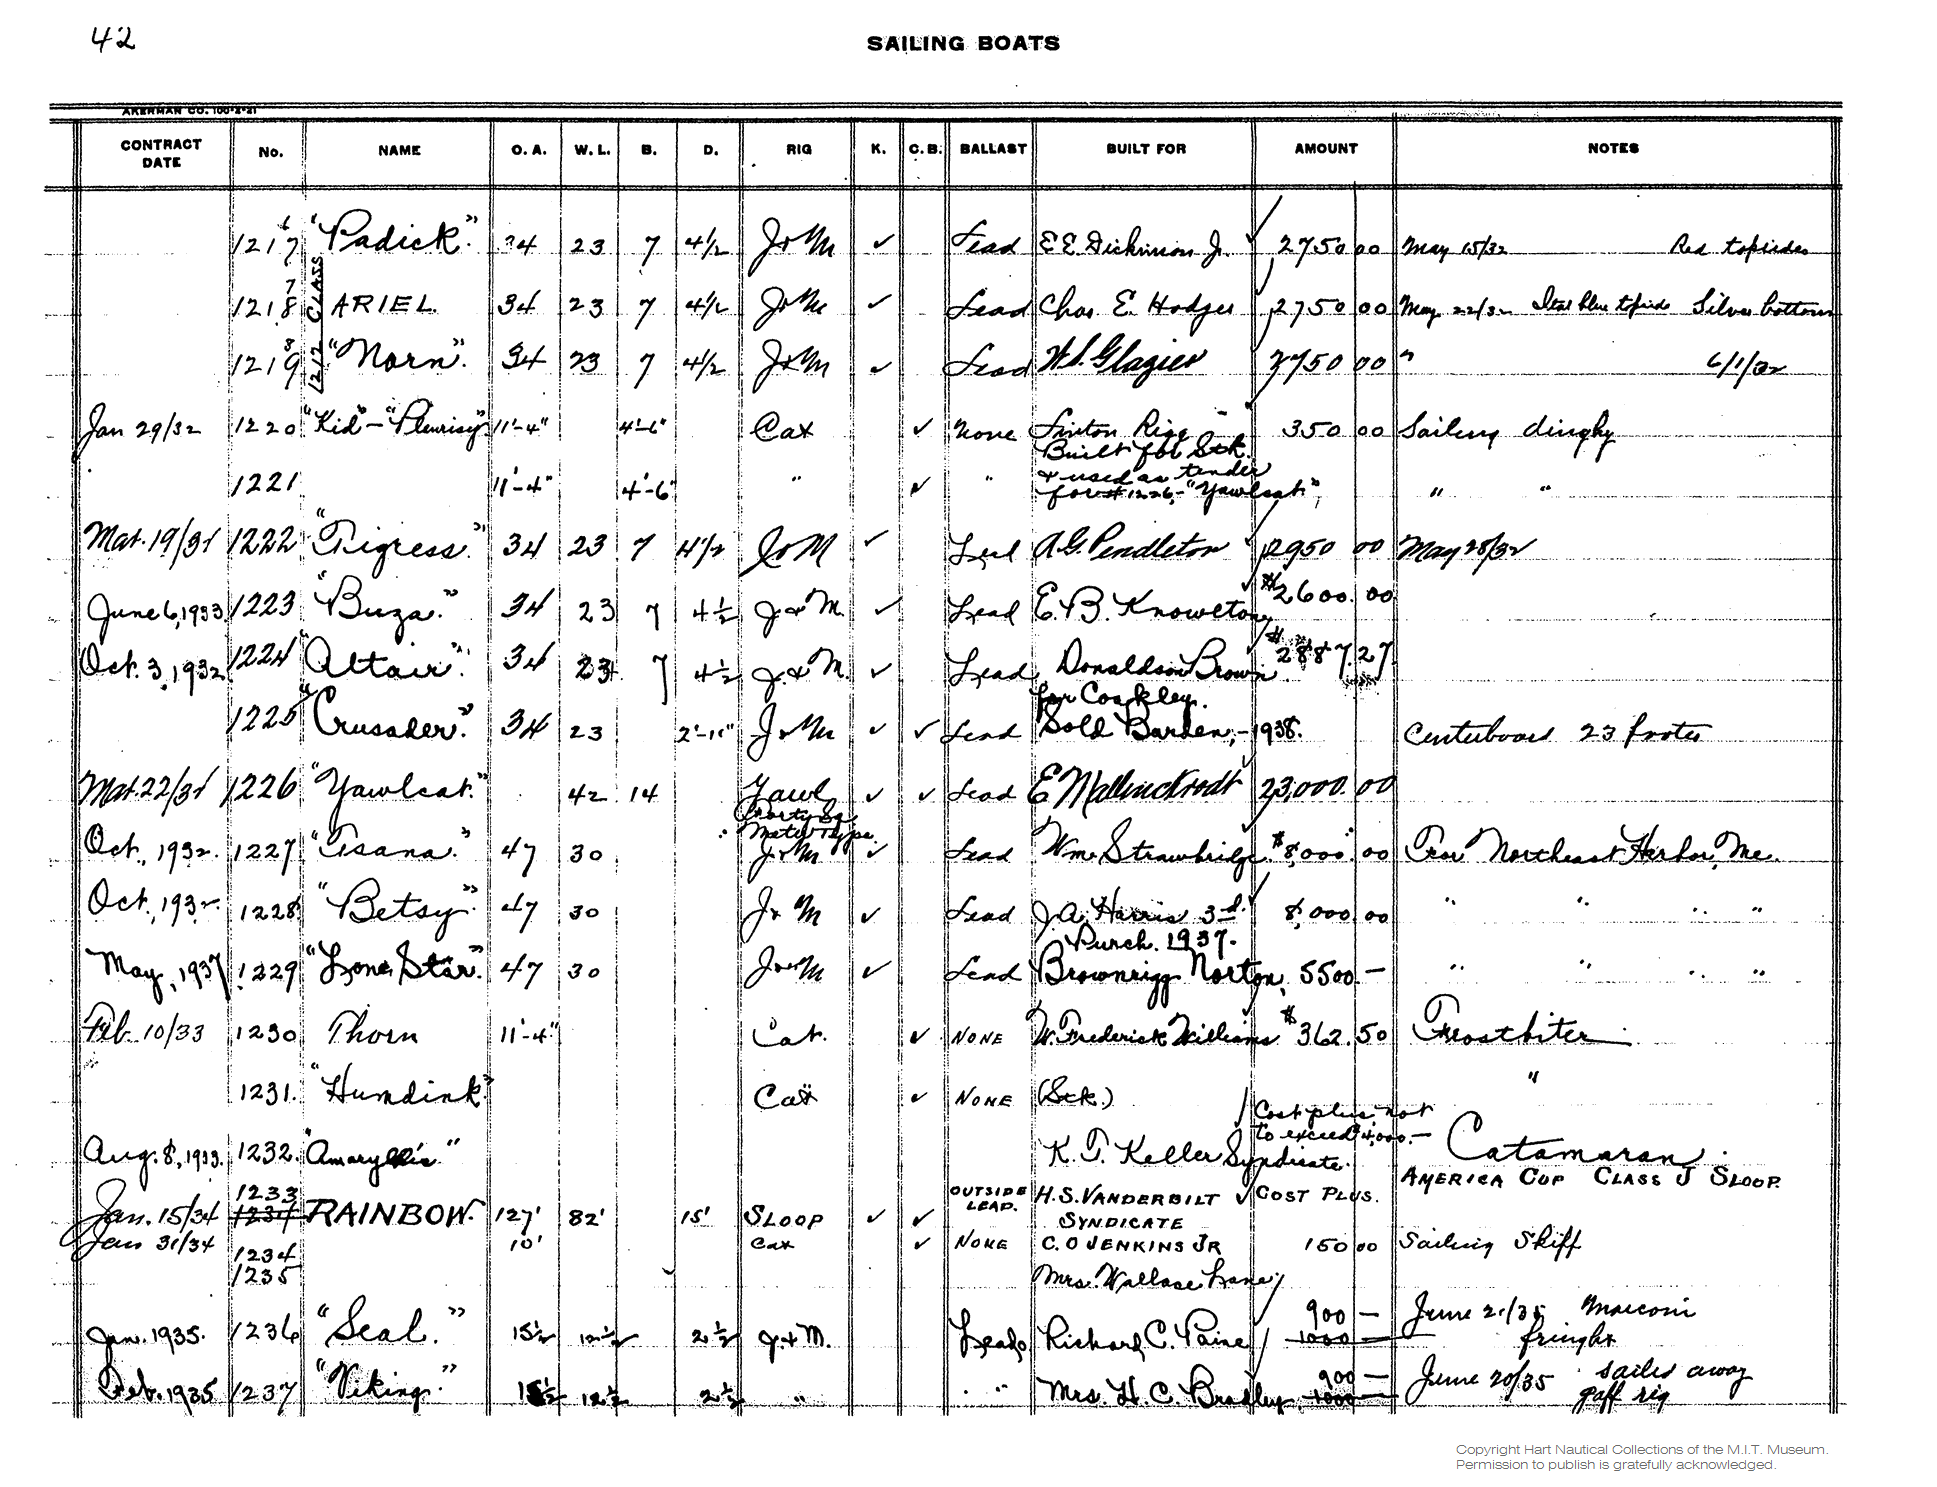 42
SAILING BOATS
AKERMAN CO. 100-2-21
CONTRACT DATE No. NAME O. A. W. L. B. D. RIG K. C. B. BALLAST BUILT FOR AMOUNT NOTES
1217 6 "Padick." 34 23 7 4 1/2 J & M ✓ Lead E.E. Dickinson Jr. ✓ 2750 00 May 15/32 Red topsides
1218 7 ARIEL. 34 23 7 4 1/2 J & M ✓ Lead Chas E. Hodges 2750 00 May 22/32 blue topsides Silver bottom
1217 CLASS
1219 8 "Norn". 34 23 7 4 1/2 J & M ✓ Lead W.S. Glazier 2750 00 " 6/1/32
Jan 29/32 1220 "Kid" - "Pleurisy" 11'-4" 4'-6" Cat ✓ None 350 00 Sailing dinghy
Built for Stk.
1221 11'-4" 4'-6" " ✓ " & used as tender
for #1226,-"Yawlcat", " "
Mar. 19/31 1222 "Tigress." 34 23 7 4 1/2 J & M ✓ Lead A.G. Pendleton ✓ 2950 00 May 28/32
June 6, 1933 1223 "Buza." 34 23 7 4 1/2 J. & M. ✓ Lead E. B. Knowlton $2600.00
Oct. 3, 1932 1224 "Altair". 34 23 7 4 1/2 J. & M. ✓ Lead Donaldson Brown $2887.27
for Coakley.
1225 "Crusader". 34 23 2'-11" J & M ✓ ✓ Lead Sold Barden,-1938. Centerboard 23 footer
Mar. 22/31 1226 "Yawlcat." 42 14 Yawl ✓ ✓ Lead E Mallinckrodt 23,000.00
Forty Sq
Meter Type
Oct., 1932. 1227 "Tsana." 47 30 J & M ✓ Lead Wm. Strawbridge $8,000.00 For Northeast Harbor, Me.
Oct., 1932 1228 "Betsy." 47 30 J & M ✓ Lead J.A. Harris 3rd. 8,000.00 " " " "
Purch. 1937.
May, 1937 1229 "Lone Star". 47 30 J & M ✓ Lead Brownrigg Norton, 5500.— " " " "
Feb. 10/33 1230 Thorn 11'-4" Cat. ✓ NONE W. Frederick Williams $362.50 Frostbiter
1231. "Humdink" Cat ✓ NONE (Stk.) "
Cost plus not
to exceed $4,000.—
Aug. 8, 1933. 1232. "Amaryllis" K. T. Keller Syndicate. Catamaran.
Jan. 15/34 1233 1234 RAINBOW. 127' 82' 15' SLOOP ✓ ✓ OUTSIDE LEAD. H.S. VANDERBILT SYNDICATE ✓ COST PLUS. AMERICA CUP CLASS J SLOOP.
Jan 31/34 1234 10' Cat ✓ NONE C. O JENKINS JR 150 00 Sailing Skiff
1235 Mrs. Wallace Lane
Jan. 1935. 1236 "Seal." 15 1/2 12 1/2 2 1/2 J. & M. Lead Richard C. Paine 900 — 1000 — June 21/35 Marconi
freight
Feb. 1935 1237 "Viking." 15 1/2 12 1/2 2 1/2 " " Mrs. H. C. Bradley 900 — 1000 — June 20/35 sailed away
gaff rig
Copyright Hart Nautical Collections of the M.I.T. Museum.
Permission to publish is gratefully acknowledged.